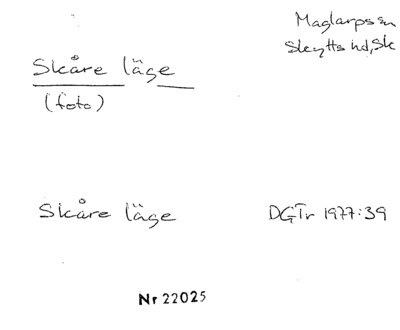 Maglarps sn
Skytts hd, Sk
Skåre läge
(foto)
Skåre läge
DGTr 1977:39
Nr 22025